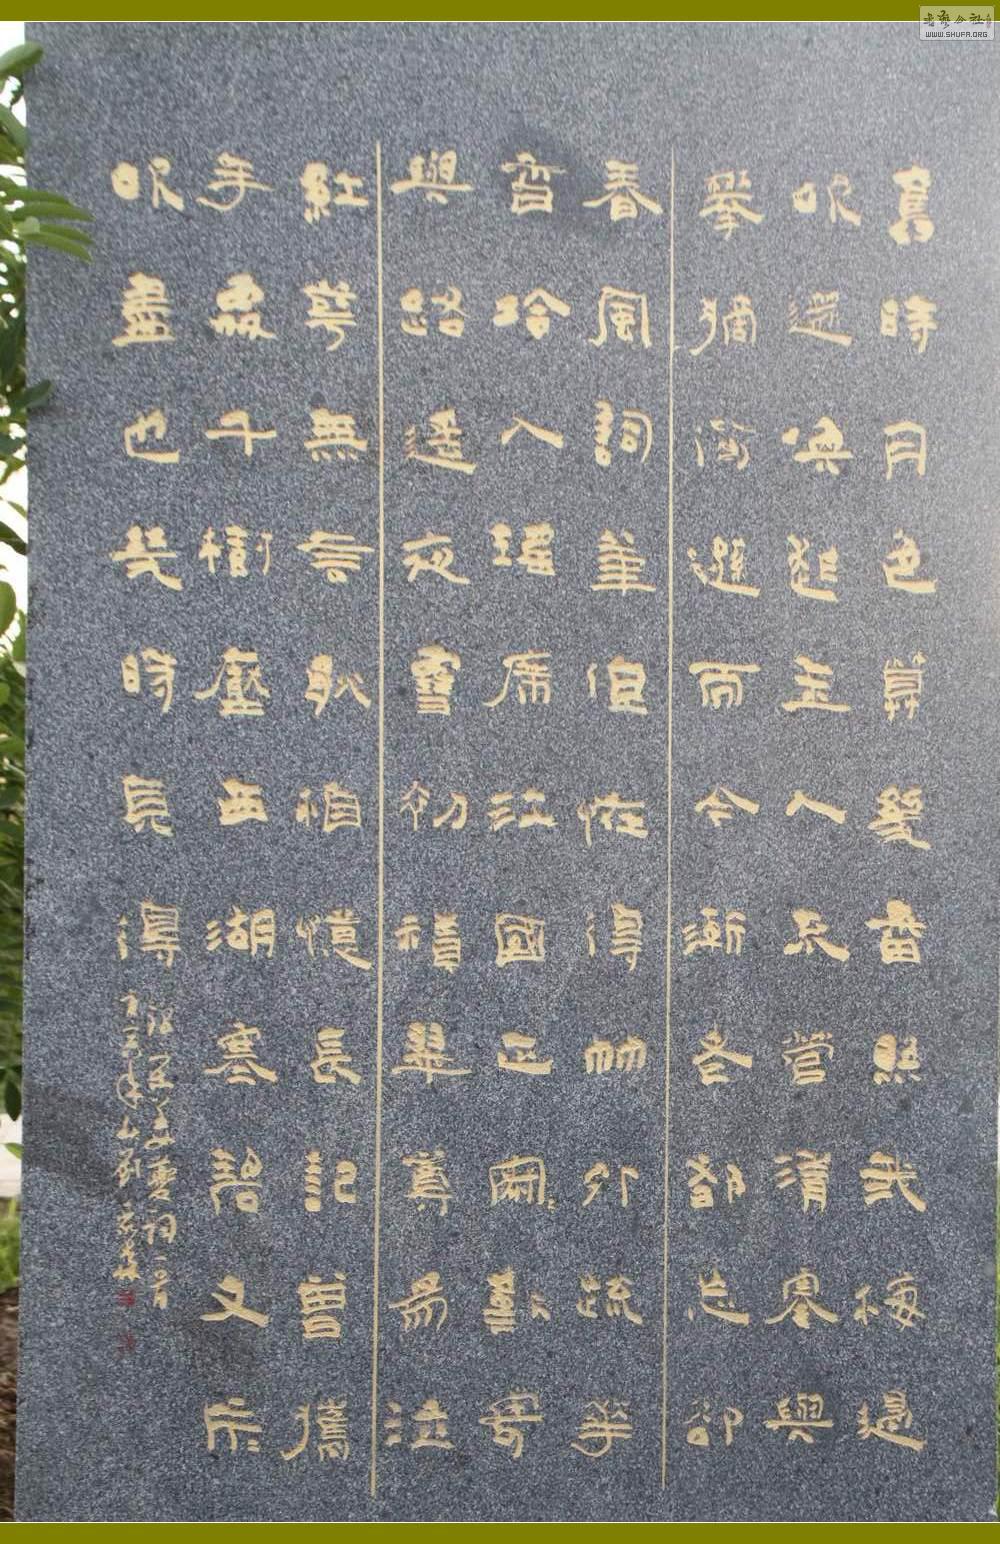 舊時月色算幾番照我梅邊
吹笛喚起玉人不管清寒與
攀摘何遜而今漸老都忘卻
春風詞筆但怪得竹外疏華
香冷入瑤席江國正寂:歎寄
與路遙夜雪初積翠尊易泣
紅萼無言耿相憶長記曾攜
手處千樹壓西湖寒碧又片:
吹盡也幾時見得
姜夔詞一首
WWW.SHUFA.ORG